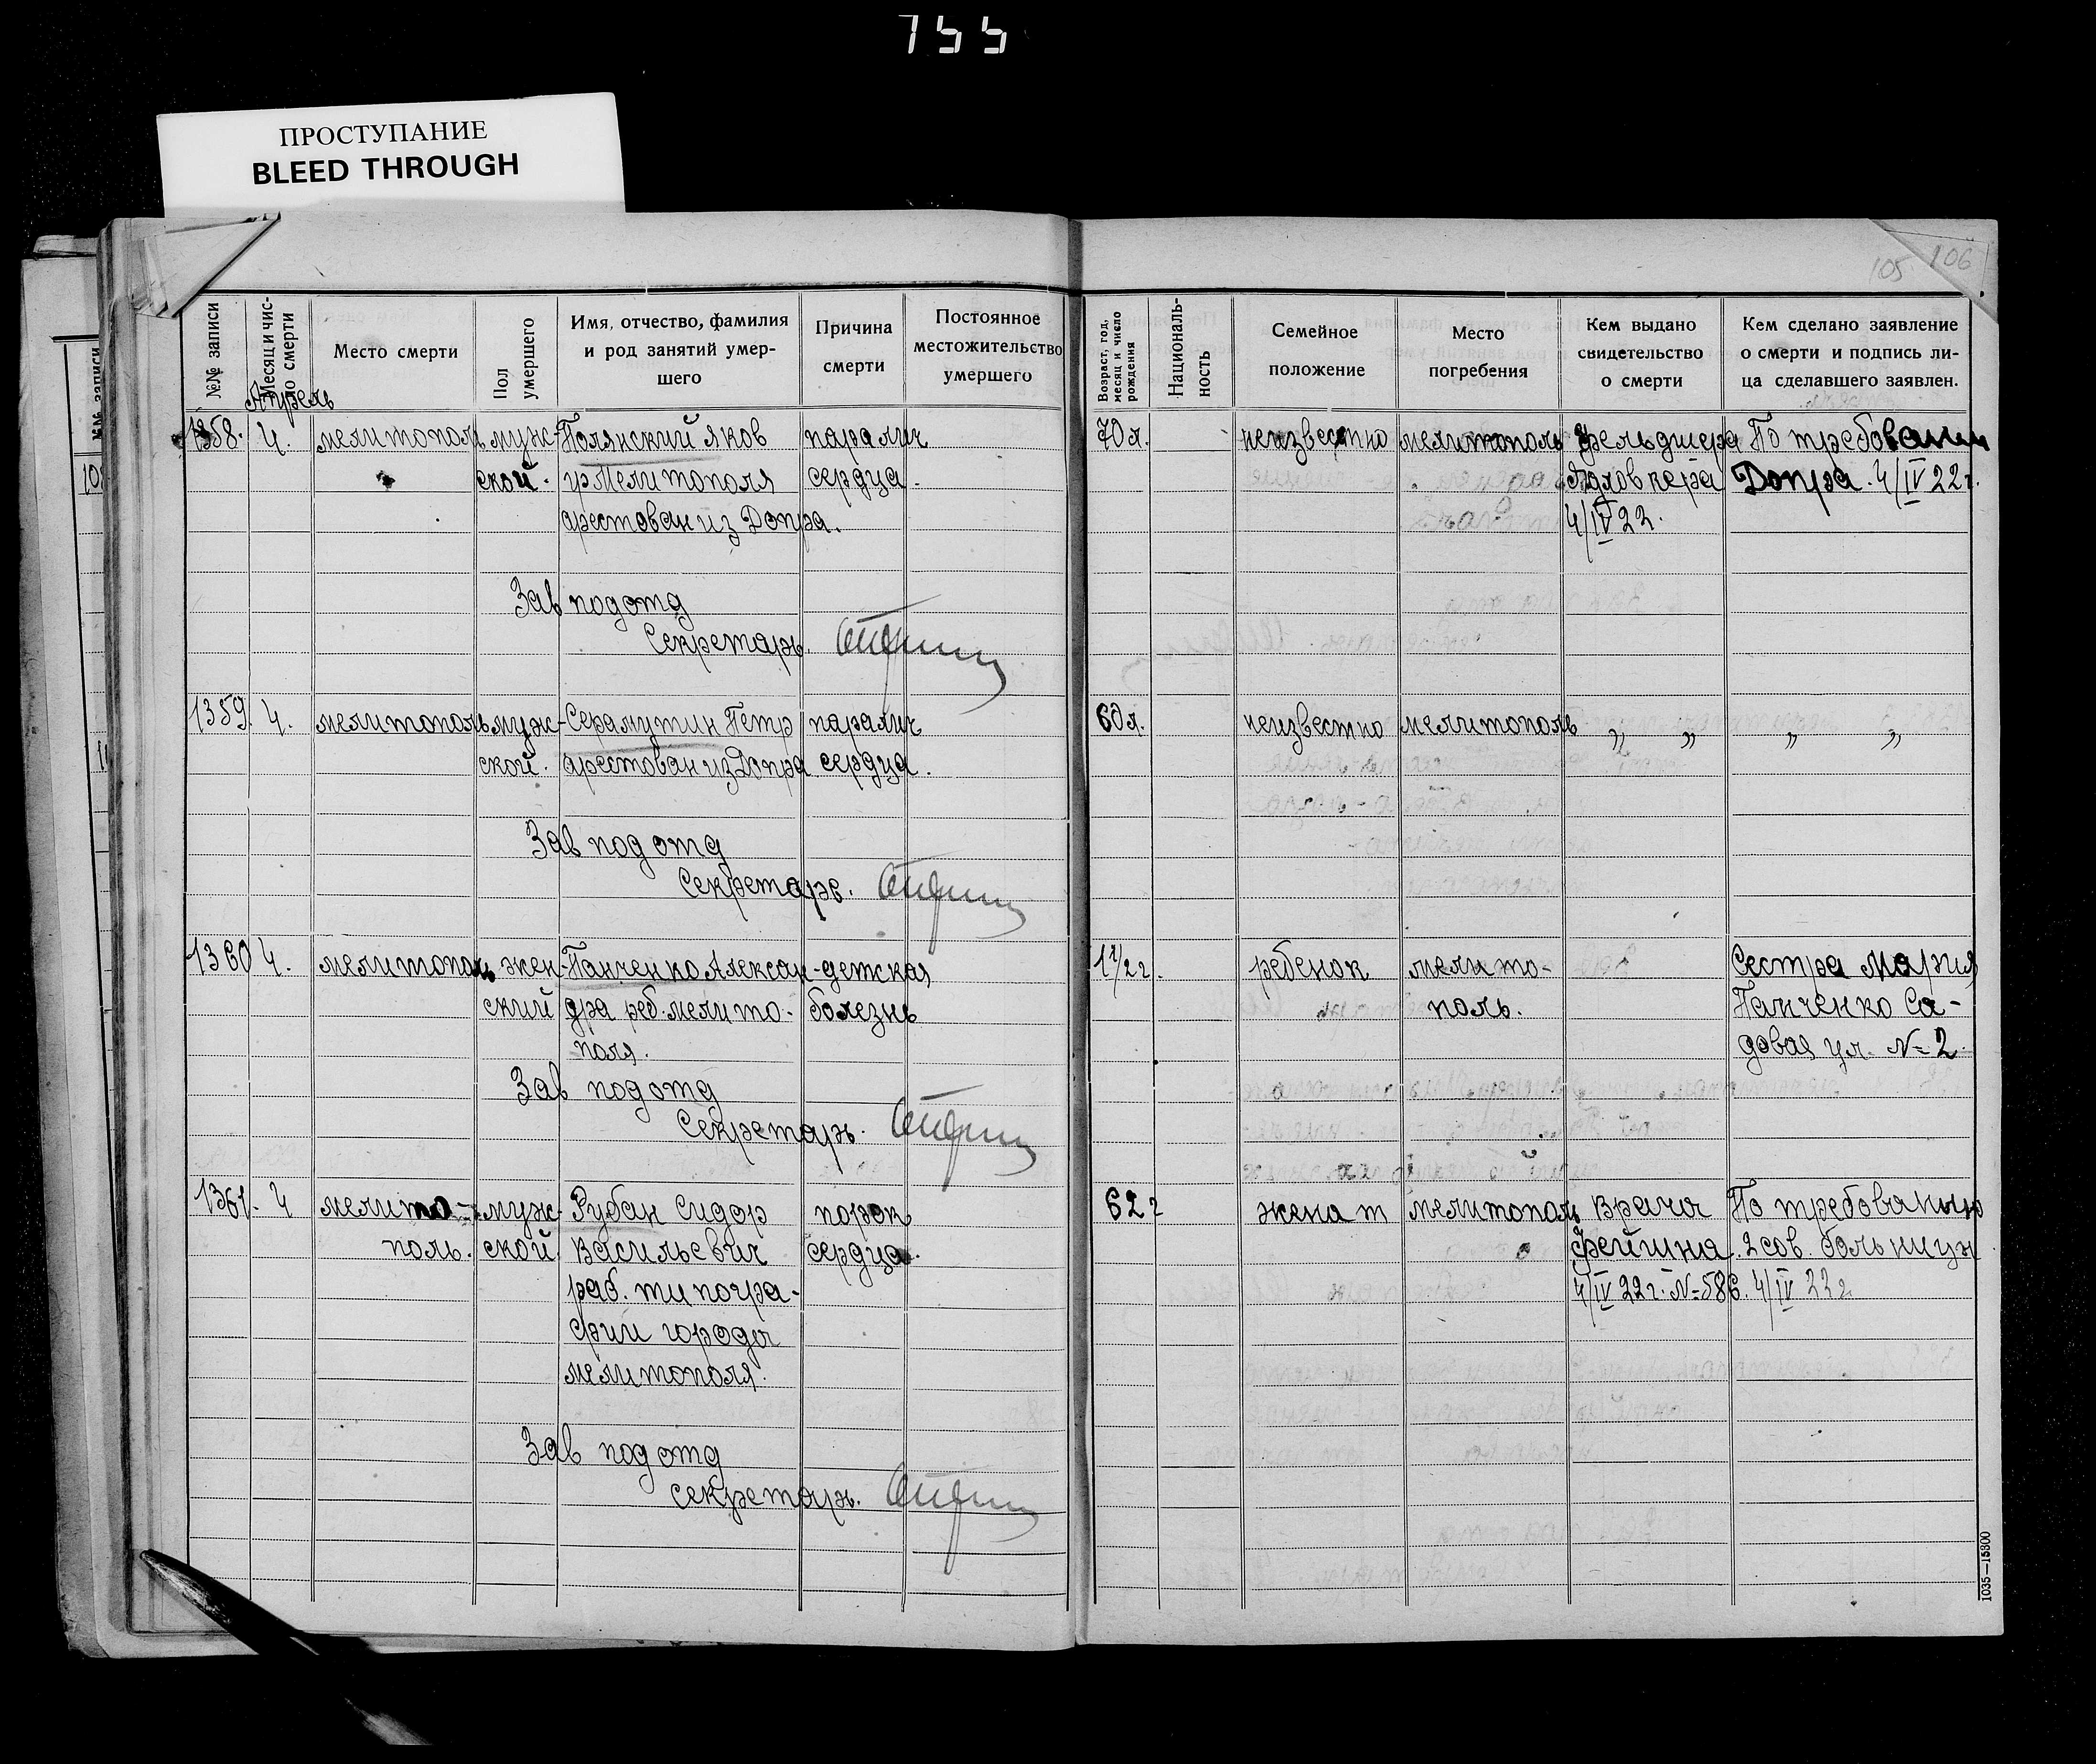 755
ПРОСТУПАНИЕ
BLEED THROUGH
105 106
№№ записи
Месяц и чис-
ло смерти
Место смерти
Пол
умершего
Имя, отчество, фамилия
и род занятий умер-
шего
Причина
смерти
Постоянное
местожительство
умершего
Возраст, год,
месяц и число
рождения
Националь-
ность
Семейное
положение
Место
погребения
Кем выдано
свидетельство
о смерти
Кем сделано заявление
о смерти и подпись ли-
ца сделавшего заявлен.
Апрель
1358. 4. мелитополь муж- Полянский Яков паралич 70 л. неизвестно мелитополь фельдшера По требованию
ской. гр Мелитополя сердца. Допра. 4/IV 22 г.
арестован из Допра. 4/IV 22.
Зав подотд
Секретарь.
1359. 4. мелитополь муж- Серамутин Петр паралич 60 л. неизвестно мелитополь „ „ „ „
ской. арестован из Допра сердца.
Зав подотд
Секретарь.
1360 4. мелитополь жен- Панченко Алексан- детская 1 1/2 г. ребенок мелито- Сестра Мария
ский дра реб. мелито- болезнь поль. Панченко Са-
поля. довая ул. № 2.
Зав подотд
Секретарь.
1361. 4 мелито- муж- Рубан Сидор порок 62 г женат мелитополь врача По требованию
поль. ской Васильевич сердца. Фейгина. 2 сов. больницы
раб. типогра- 4/IV 22 г. № 586. 4/IV 22 г.
фии города
мелитополя.
Зав подотд
секретарь.
1035—15800